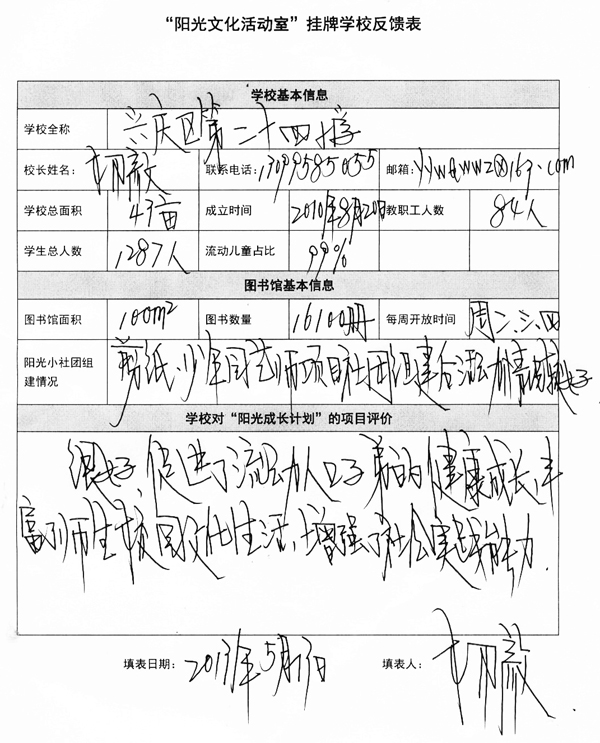 “阳光文化活动室”挂牌学校反馈表
学校基本信息
学校全称 兴庆区第二十四小学
校长姓名： 联系电话：13099585055 邮箱：
学校总面积 43亩 成立时间 2010年8月20日 教职工人数 84人
学生总人数 1287人 流动儿童占比 99%
图书馆基本信息
图书馆面积 100m² 图书数量 16100册 每周开放时间 周二、三、四
阳光小社团组 剪纸、少年园艺师项目社团组建后活动开展情况很好
建情况
学校对“阳光成长计划”的项目评价
很好 促进了流动人口子弟的健康成长，丰
富了师生校园文化生活，增强了社会实践能力.
填表日期：2013年5月13日 填表人：